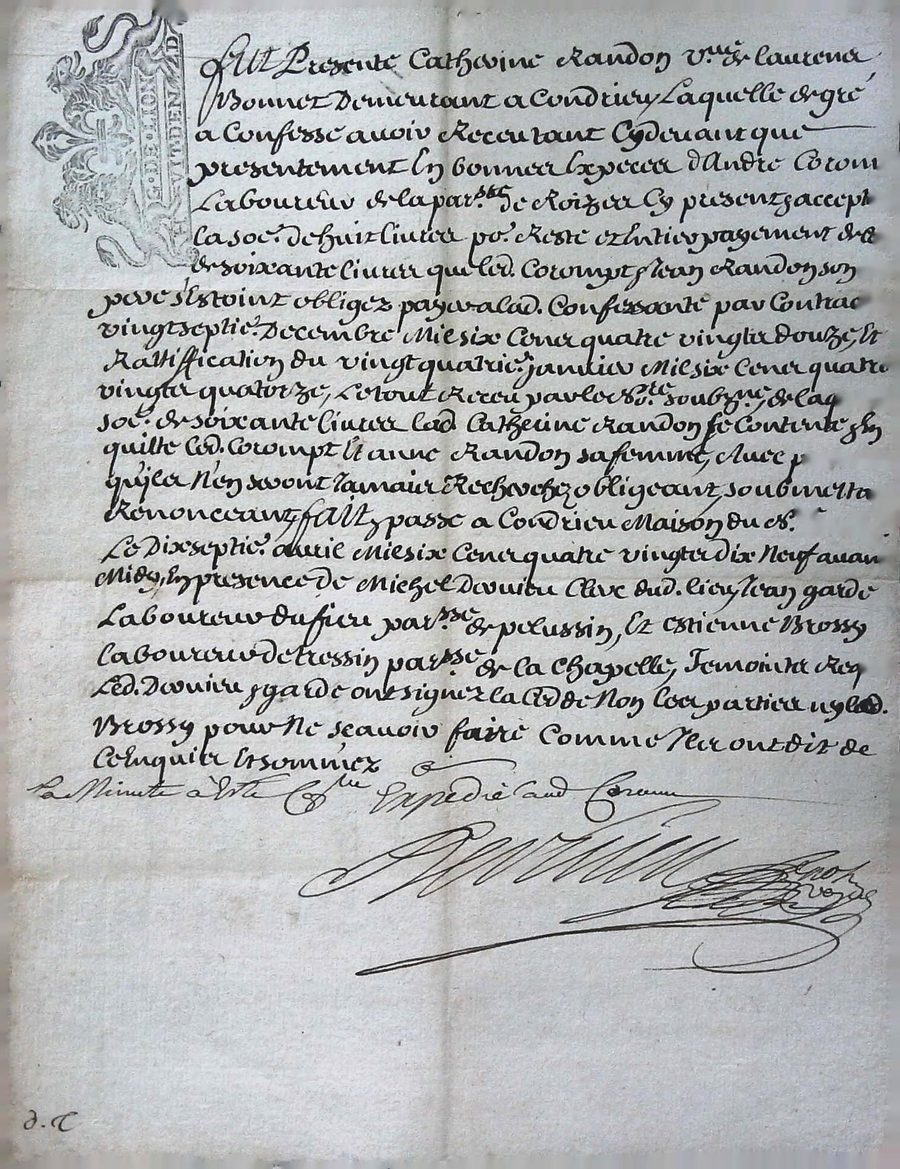 G. DE LION
HUIT DEN. 2D
fut Presente Catherine Randon v.euve de laurens
Bonnet Demeurant a Condrieu, Laquelle de gré
a Confessé avoir Receu tant Cydevant que
presentement En bonnes Especes d'André Corom
Laboureur de la par.sse de Roizes Cy present & accept
la so.e de huit livres po.r Reste et Entier payement de
de soixante livres que led. Corompt & Jean Randon son
pere s'Estoint obligez payer a lad. Confessante par Contrac
vingtseptie. Decembre Mil six Cens quatre vingts douze, Et
Rattiffication du vingt quatrie. janvier Mil six Cens quatre
vingts quatorze, Le tout Receu par le no.re soubz.né, de laq
so.e de soixante livres lad. Catherine Randon se Contente & En
quitte led. Corompt Et anne Randon sa femme, Avec p
qu'jls N'en seront Jamais Recherchez obligeant, soubmetta
Renonceant, fait & passé a Condrieu Maison du no.
Le Dixseptie. avril Mil six Cens quatre vingts dix Neuf avan
Midy, En presence de Michel Dervieu Clerc dud. lieu, Jean garde
Laboureur du fieu par.sse de pelussin, Et Estienne Brossy
laboureur de tressin par.sse de la Chapelle, Temointz Req
Led. Dervieu & garde ont signez la Ced de Non lees parties ny led.
Brossy pour Ne sçavoir faire Comme Jls ont dit de
Ce Enquis Et sommez
La Minute à Esté Co.llée Expedié aud Corom
Dervieu
d. C